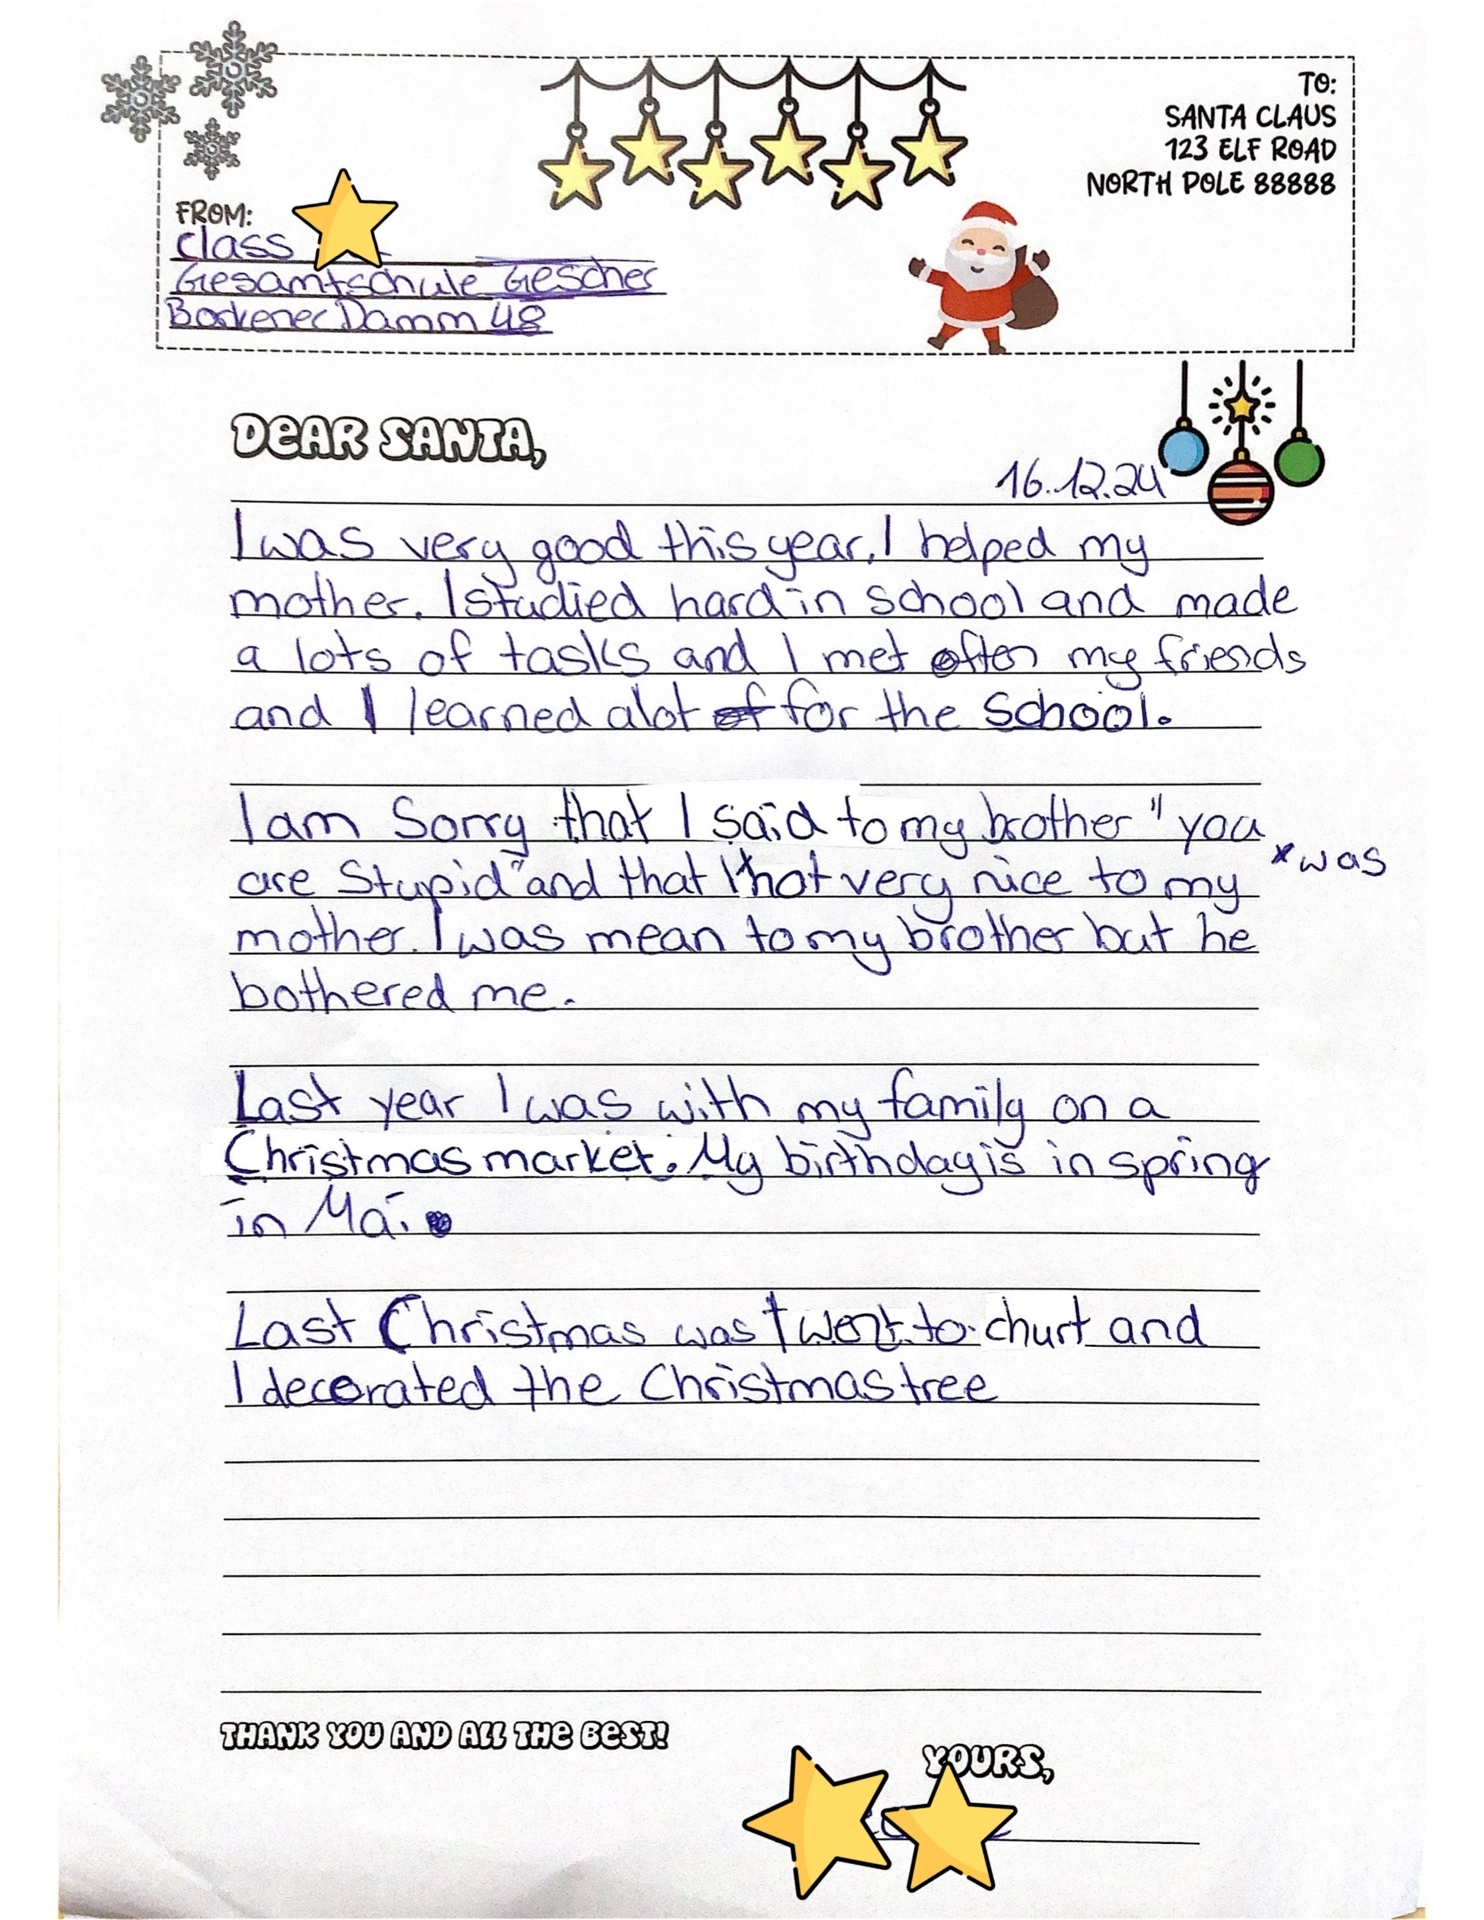 TO:
SANTA CLAUS
123 ELF ROAD
NORTH POLE 88888
FROM:
class
Gesamtschule Gescher
Borkener Damm 48
DEAR SANTA,
16.12.24
I was very good this year. I helped my
mother. I studied hard in school and made
a lots of tasks and I met often my friends
and I learned alot for the School.
I am Sorry that I said to my brother "you
are Stupid" and that I x not very nice to my
x was
mother. I was mean to my brother but he
bothered me.
Last year I was with my family on a
Christmas market. My birthday is in spring
in Mai.
Last Christmas was I went to churt and
I decorated the Christmas tree
THANK YOU AND ALL THE BEST!
YOURS,